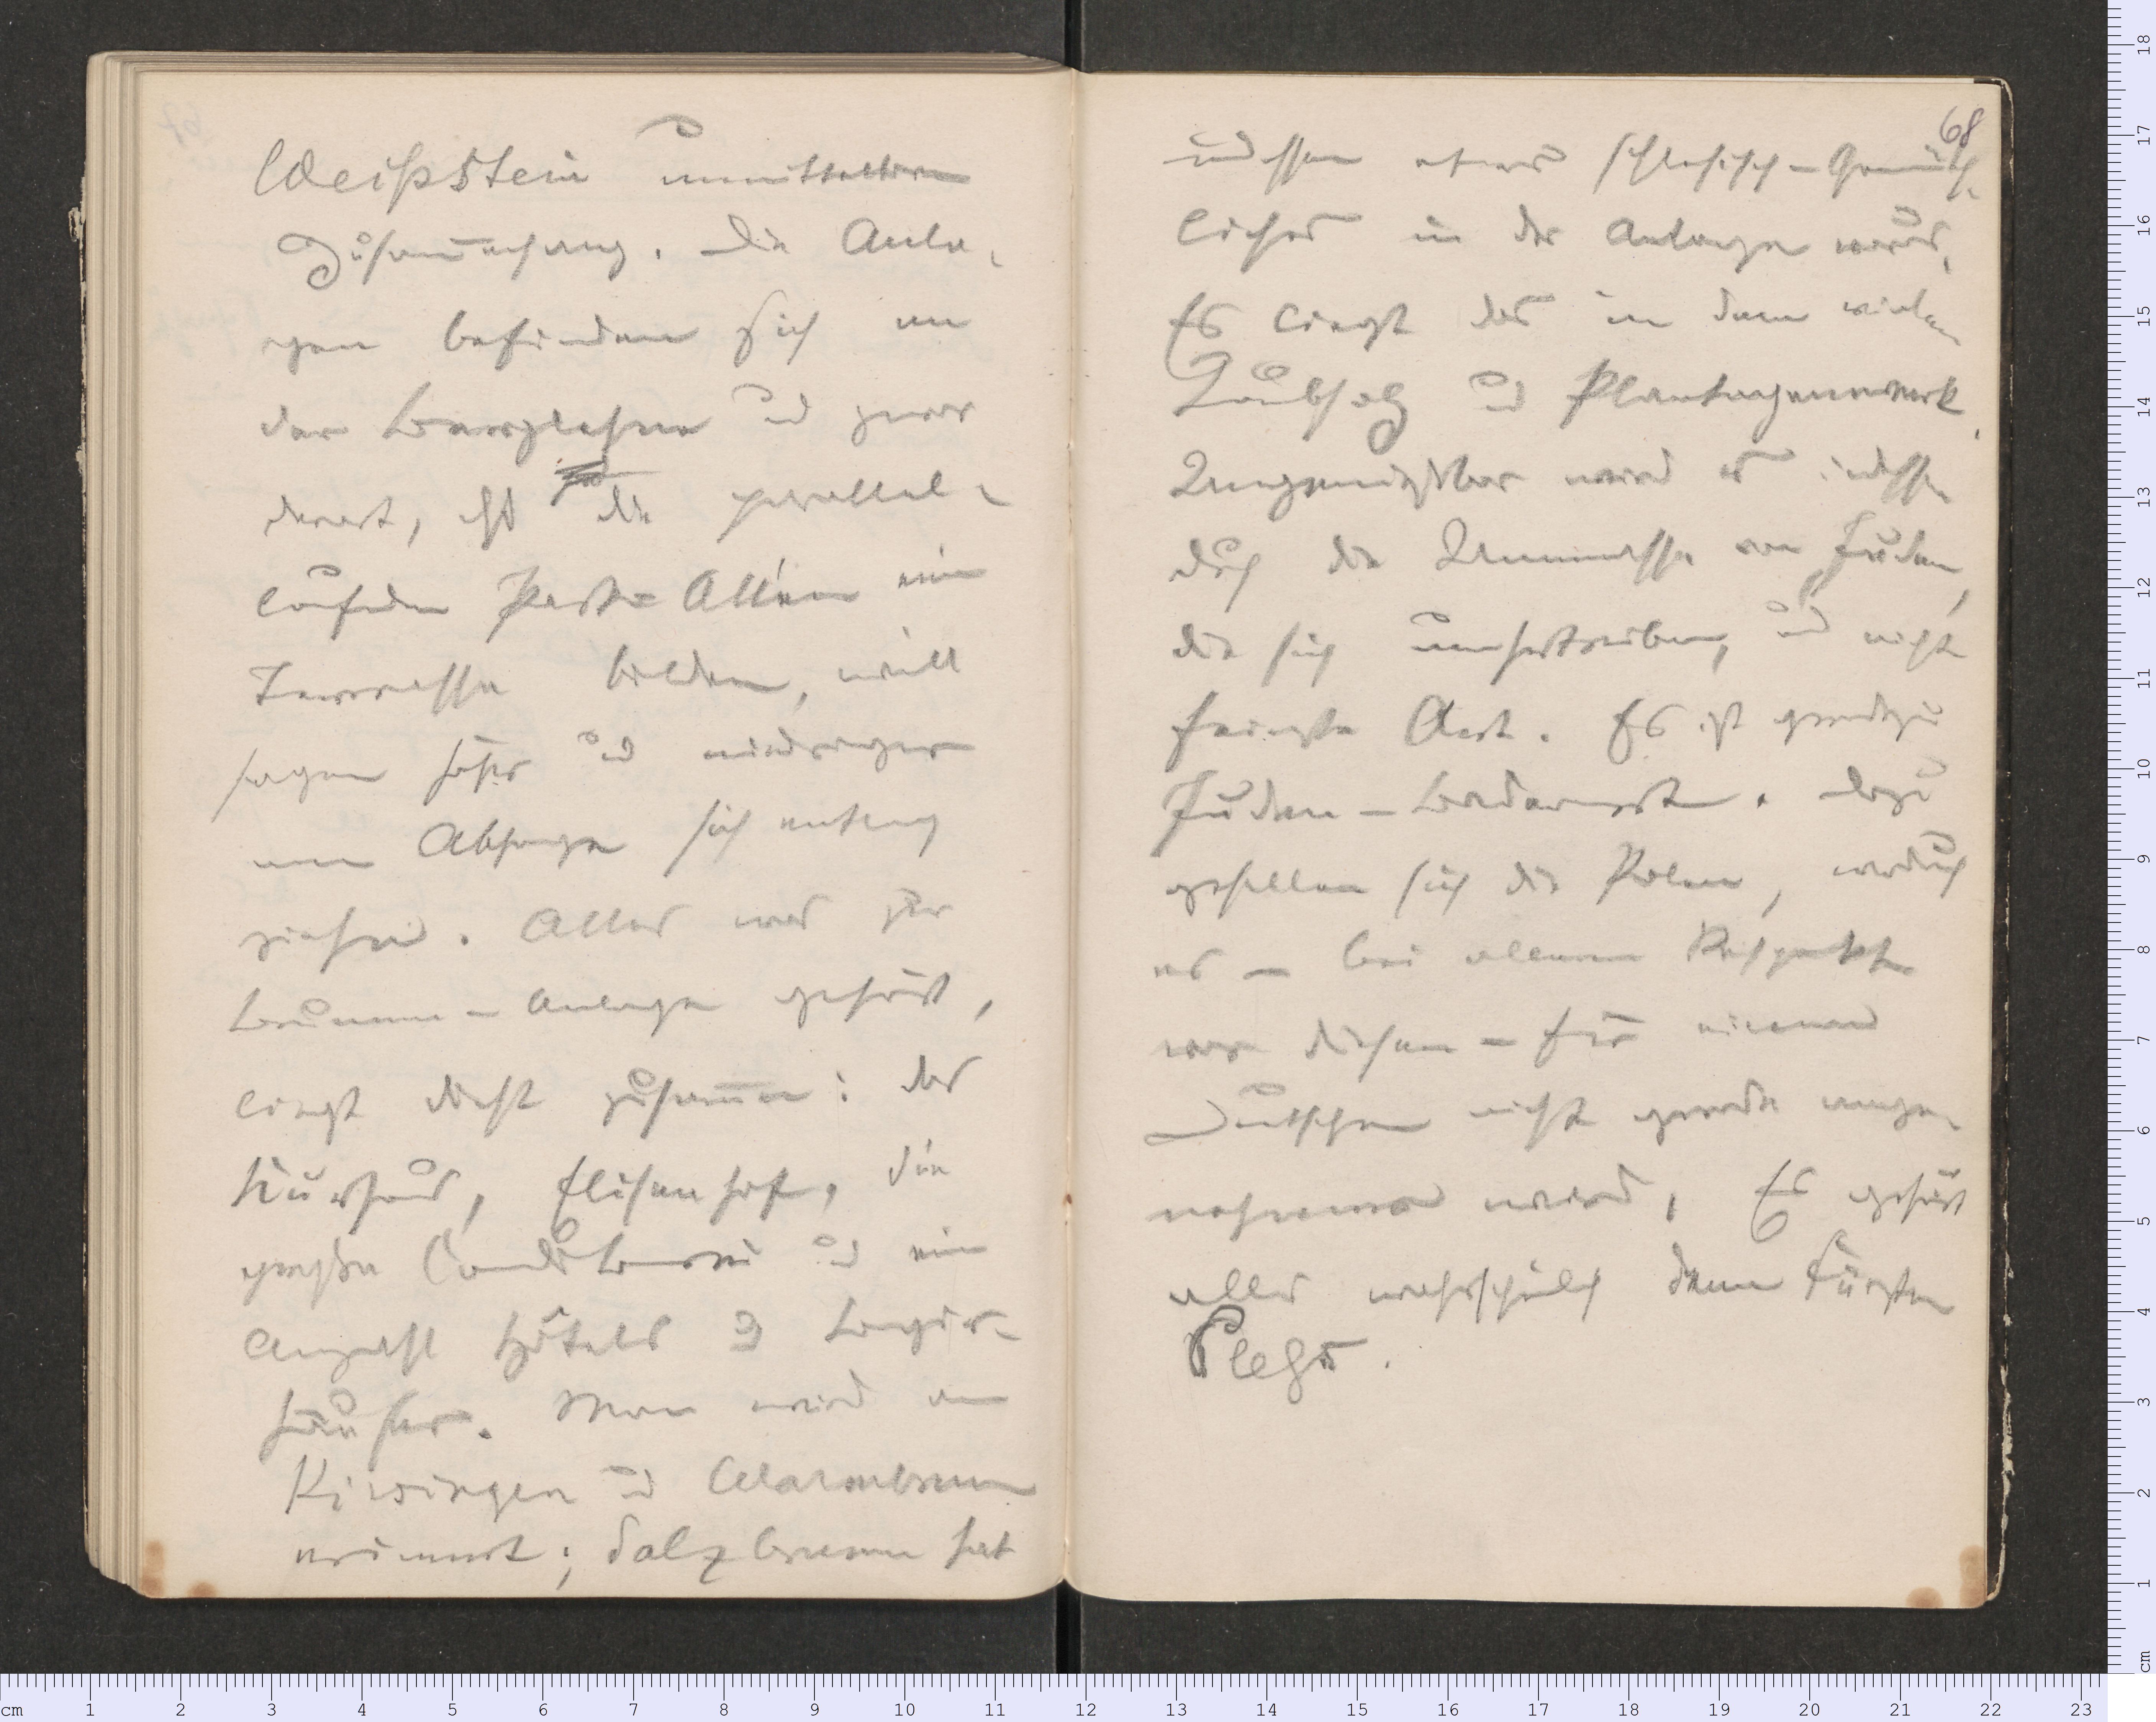 Weißstein unmittelbaren
Zusam̅enhang. Die Anla-
gen befinden sich an
der Berglehne und zwar
derart, daß die parallel-
laufenden Park-Alleen eine
Terrasse bilden, will
sagen höher und niedriger
am Abhange sich entlang
ziehn. Alles was zur
Brunnen-Anlage gehört,
liegt dicht zusam̅en: das
Kurhaus, Elisenhof, die
große Conditorei und eine
Anzahl Hôtels u Logir-
häuser. Man wird an
Kissingen und Warmbrunn
erinnert; Salzbrunn hat
68
indessen etwas schlesisch-Gemüth-
liches in der Anlage voraus.
Es liegt das in dem vielen
Laubholz und Plantagenwerk.
Ungemüthlicher wird es indessen
durch die Unmasse von Juden,
die sich umhertreiben, und nicht
feinste Art. Es ist geradezu
Juden-Badeort. Dazu
gesellen sich die Polen, wodurch
es – bei allem Respekte
vor diesen – für einen
Deutschen nicht gerade ange-
nehmer wird. Es gehört
alles wahrscheinlich dem Fürsten
Pleß.